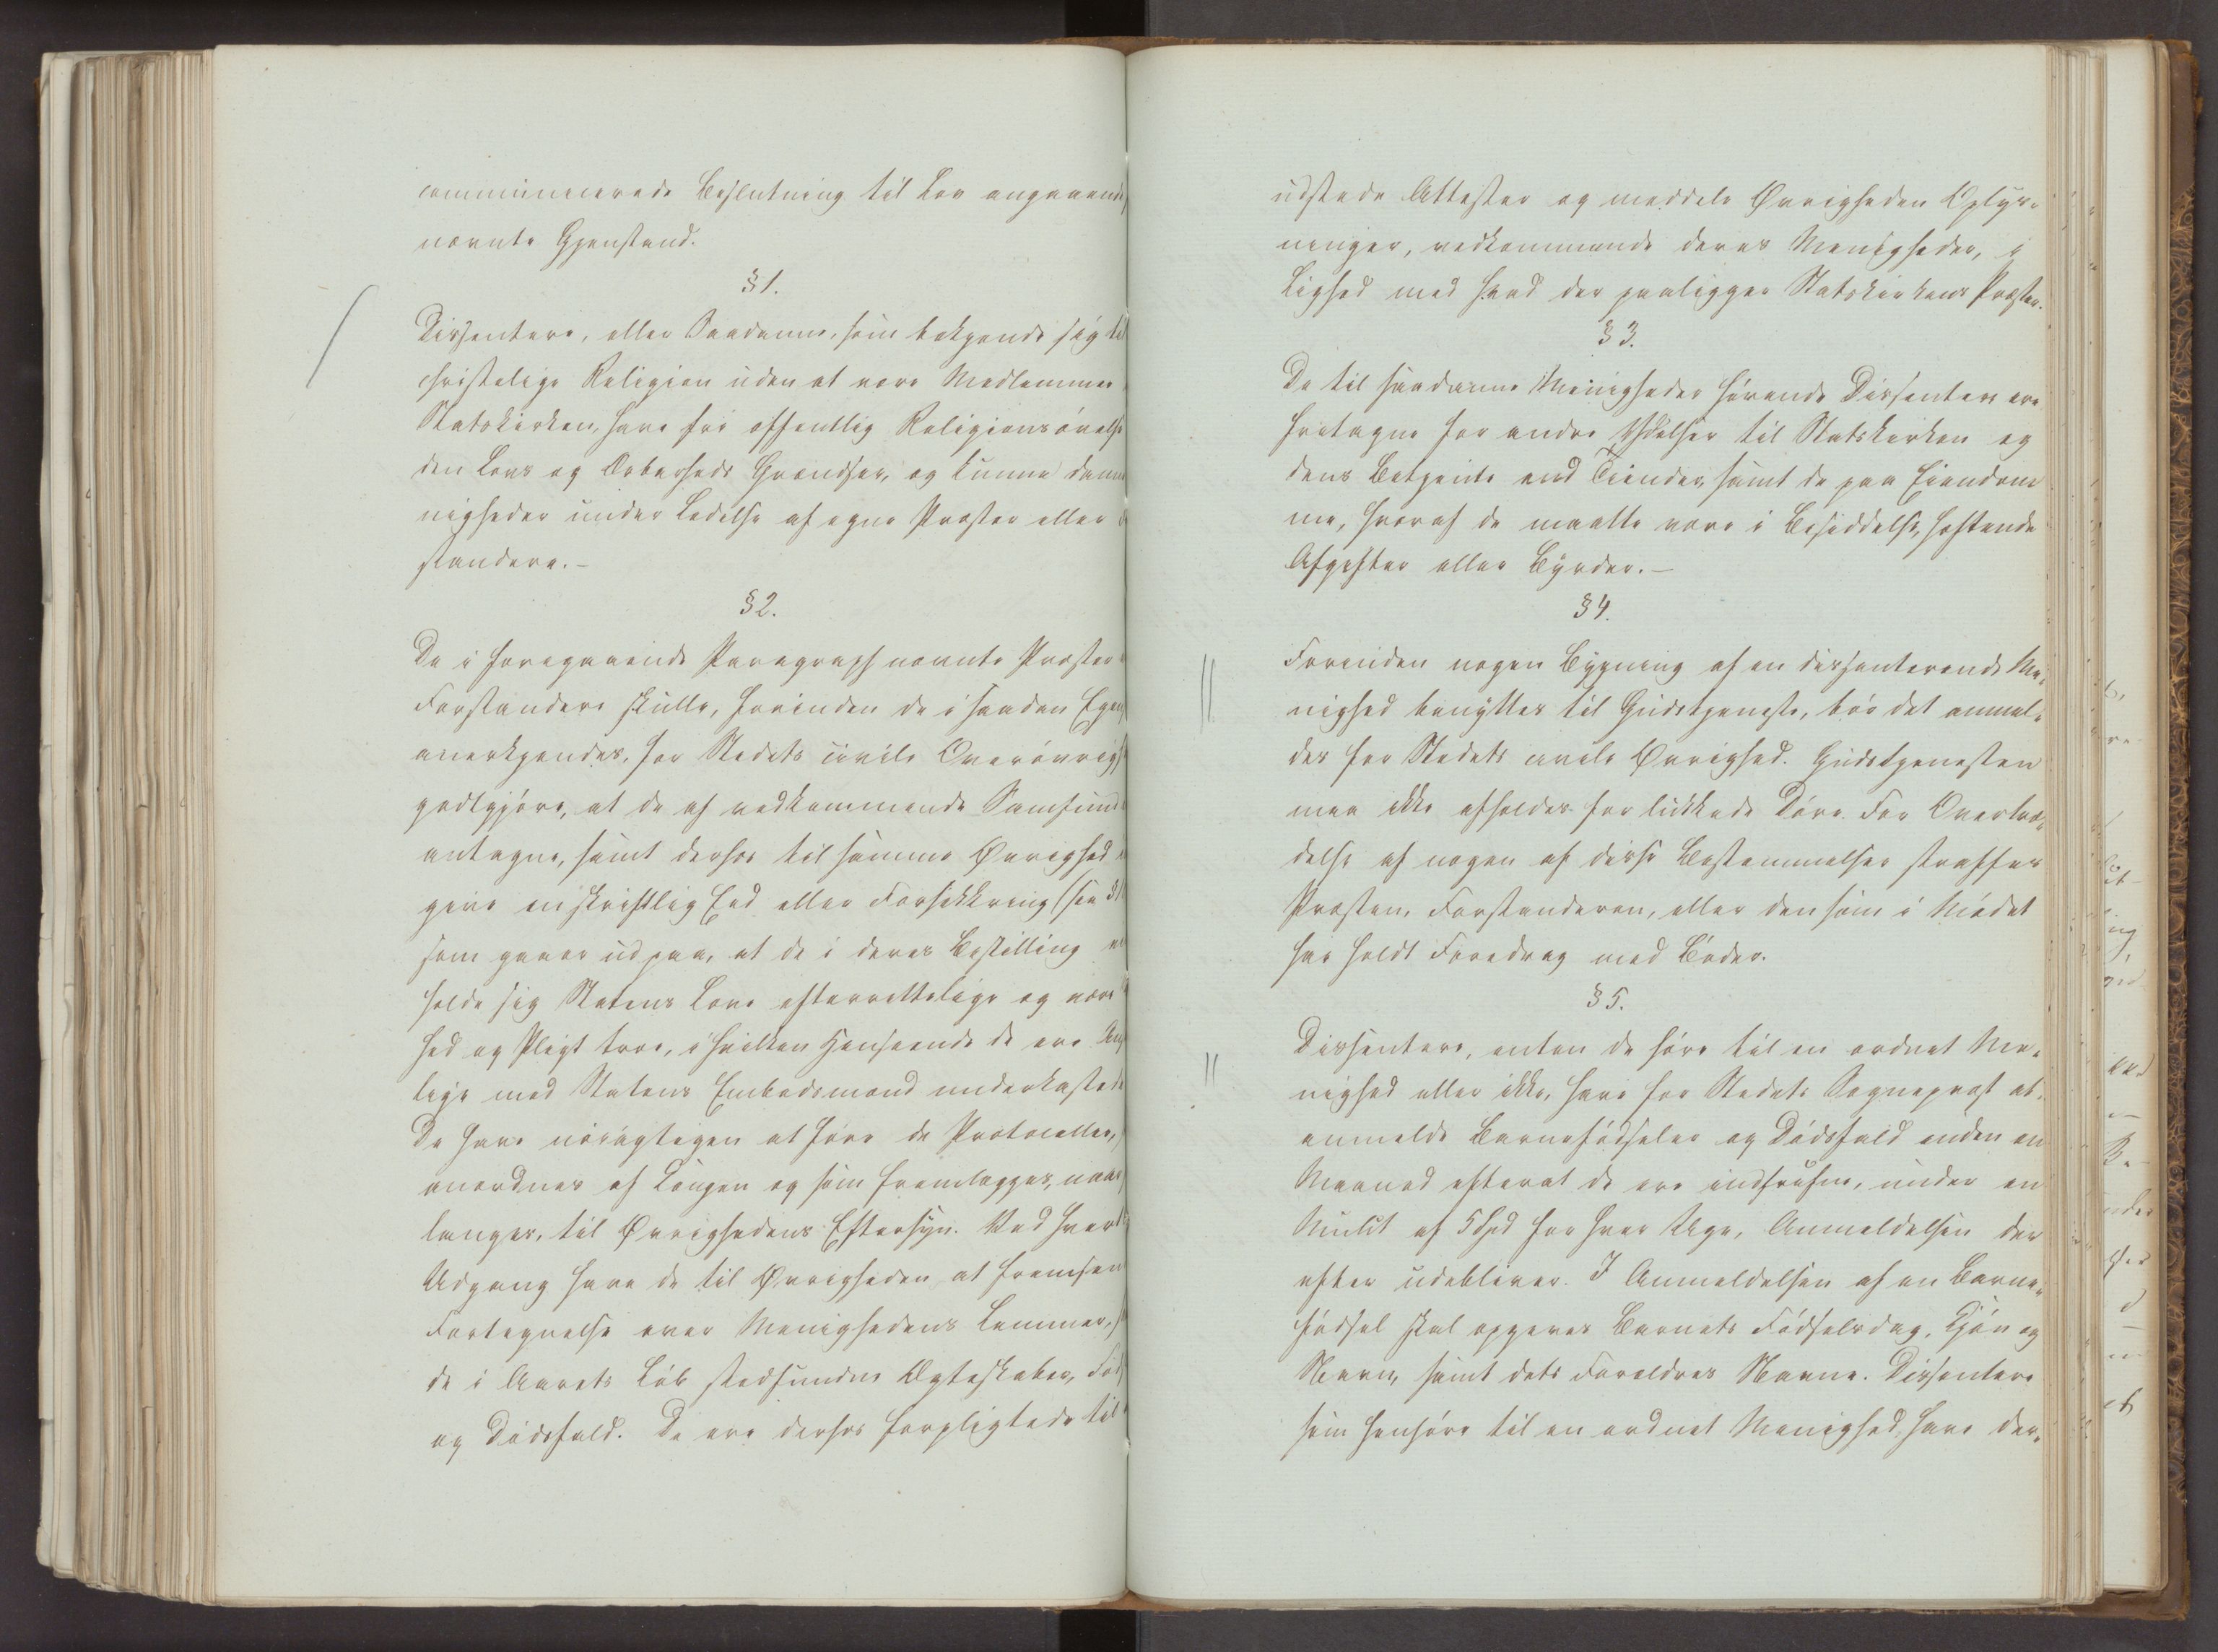 communicerede Beslutning til Lov angaaende
nævnte Gjenstand.
§ 1.
Dissentere, eller Saadanne, som bekjende sig til
christelige Religion uden at være Medlemmer
Statskirken, have fri offentlig Religionsøvelse
den Lovs og Ærbarheds Grændser, og kunne danne
nigheder under Ledelse af egne Præster eller
standere.-
§ 2.
De i foregaaende Paragraph nævnte Præster
Forstandere skulle, forinden de i saadan Egen
anerkjendes, for Stedets civile Overøvrig
godtgjøre, at de af vedkommende Samfund
antagne, samt derhos til samme Øvrighed
give en skriftlig Eed eller Forsikkring (see §
som gaaer ud paa, at de i deres Bestilling
holde sig Statens Love efterrettelige og være
hed og Pligt troe, i hvilken Henseende de ere
lige med Statens Embedsmænd underkastede
De have nöiagtigen at føre de Protocoller,
anordnes af Kongen og som fremlægges, naar
langes, til Øvrighedens Eftersyn. Ved hvert
Udgang have de til Øvrigheden at fremsen
Fortegnelse over Menighedens Lemmer,
de i Aarets Løb stedfundne Ægteskaber, Föd
og Dødsfald. De ere derhos forpligtede til
udstede Attester og meddele Øvrigheden Oplys-
ninger, vedkommende deres Menigheder, i
Lighed med hvad der paaligger Statskirkens Præster.
§ 3.
De til saadanne Menigheder hørende Dissentere ere
fritagne for andre Ydelser til Statskirken og
dens Betjente end Tiender, samt de paa Eiendom
me, hvoraf de maatte være i Besiddelse, heftende
Afgifter eller Byrder.-
§ 4.
Forinden nogen Bygning af en dissenterende Me-
nighed benyttes til Gudstjeneste, bör det anmel-
des for Stedets civile Øvrighed. Gudstjenesten
maa ikke afholdes for lukkede Döre. For Overtræ-
delse af nogen af disse Bestemmelser straffes
Præsten, Forstanderen, eller den som i Mødet
har holdt Foredrag med Bøder.
§ 5.
Dissentere, enten de høre til en ordnet Me-
nighed eller ikke, have for Stedets Sognepræst at
anmelde Barnefödsler og Dödsfald inden en
Maaned efterat de ere indtrufne, under en
Mulct af 5 Spd for hver Uge, Anmeldelsen der
efter udebliver. I Anmeldelsen af en Barne-
födsel skal opgives Barnets Födselsdag, Kjön og
Navn, samt dets Forældres Navne. Dissentere
som henhøre til en ordnet Menighed have der-